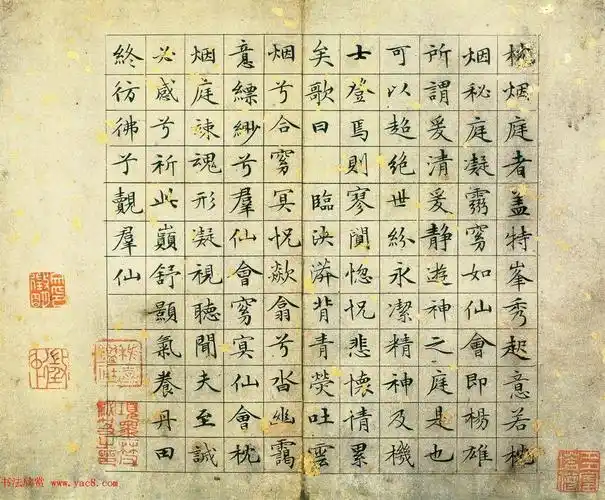 枕烟庭者盖特峯秀起意若枕
烟秘庭凝靄窈如仙會即楊雄
所謂爰清爰静遊神之庭是也
可以超絶世紛永潔精神及機
士登焉則寥闃惚怳悲懷情累
矣歌曰 臨泱漭背青熒吐雲
烟兮合窈冥怳欻翕兮沓幽靄
意縹緲兮羣仙會窈冥仙會枕
烟庭竦魂形凝視聽聞夫至誠
必感兮祈此巔舒顥氣養丹田
終彷彿兮覿羣仙
书法欣赏 www.yac8.com